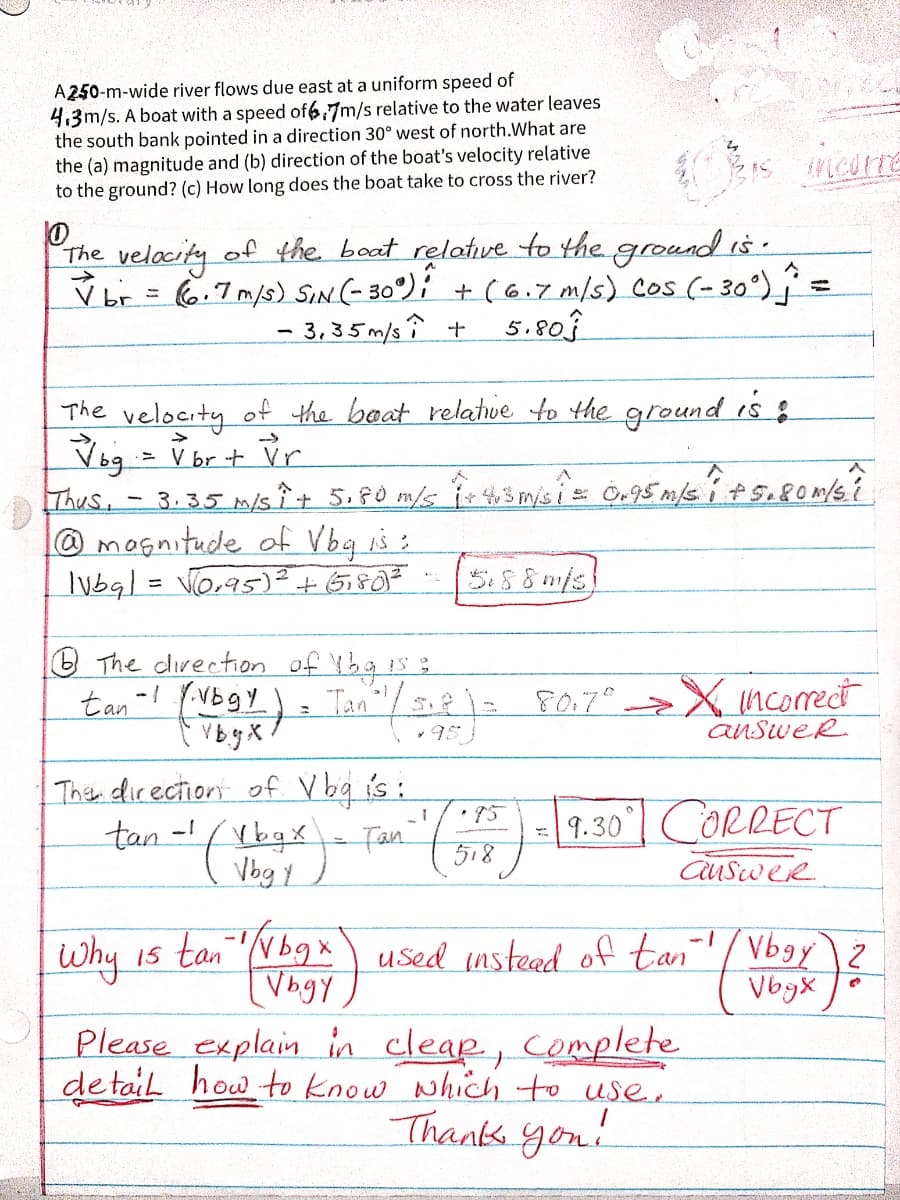 A 250-m-wide river flows due east at a uniform speed of
4.3m/s. A boat with a speed of 6.7m/s relative to the water leaves
the south bank pointed in a direction 30° west of north.What are
the (a) magnitude and (b) direction of the boat's velocity relative
to the ground? (c) How long does the boat take to cross the river?
is incorre
①
The velocity of the boat relative to the ground is.
V⃗br = (6.7 m/s) SIN (-30°) î + (6.7 m/s) cos (-30°) ĵ =
- 3.35 m/s î + 5.80 ĵ
The velocity of the boat relative to the ground is :
V⃗bg = V⃗br + V⃗r
Thus, - 3.35 m/s î + 5.80 m/s î + 4.3 m/s î = 0.95 m/s î + 5.80 m/s î
ⓐ magnitude of Vbg is :
|Vbg| = √(0.95)² + (5.80)² = 5.88 m/s
ⓑ The direction of Vbg is :
tan⁻¹ (Vbgy / Vbgx) = Tan⁻¹ (5.8 / .95) = 80.7° → X incorrect
answer
The direction of Vbg is :
tan⁻¹ (Vbgx / Vbgy) = Tan⁻¹ (.95 / 5.8) = 9.30° CORRECT
answer
Why is tan⁻¹ (Vbgx / Vbgy) used instead of tan⁻¹ (Vbgy / Vbgx) ?
Please explain in clear, complete
detail how to know which to use.
Thank you!